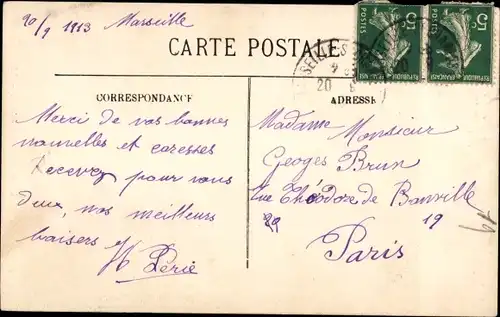 20/9 1913 Marseille
CARTE POSTALE
5c 5c
POSTES POSTES
REPUBLIQUE FRANCAISE REPUBLIQUE FRANCAISE
9
20 9
CORRESPONDANCE
ADRESSE
Merci de vos bonnes
nouvelles et caresses
Recevez pour vous
deux, nos meilleurs
baisers
Madame Monsieur
Georges Brun
rue Théodore de Banville
19
Paris